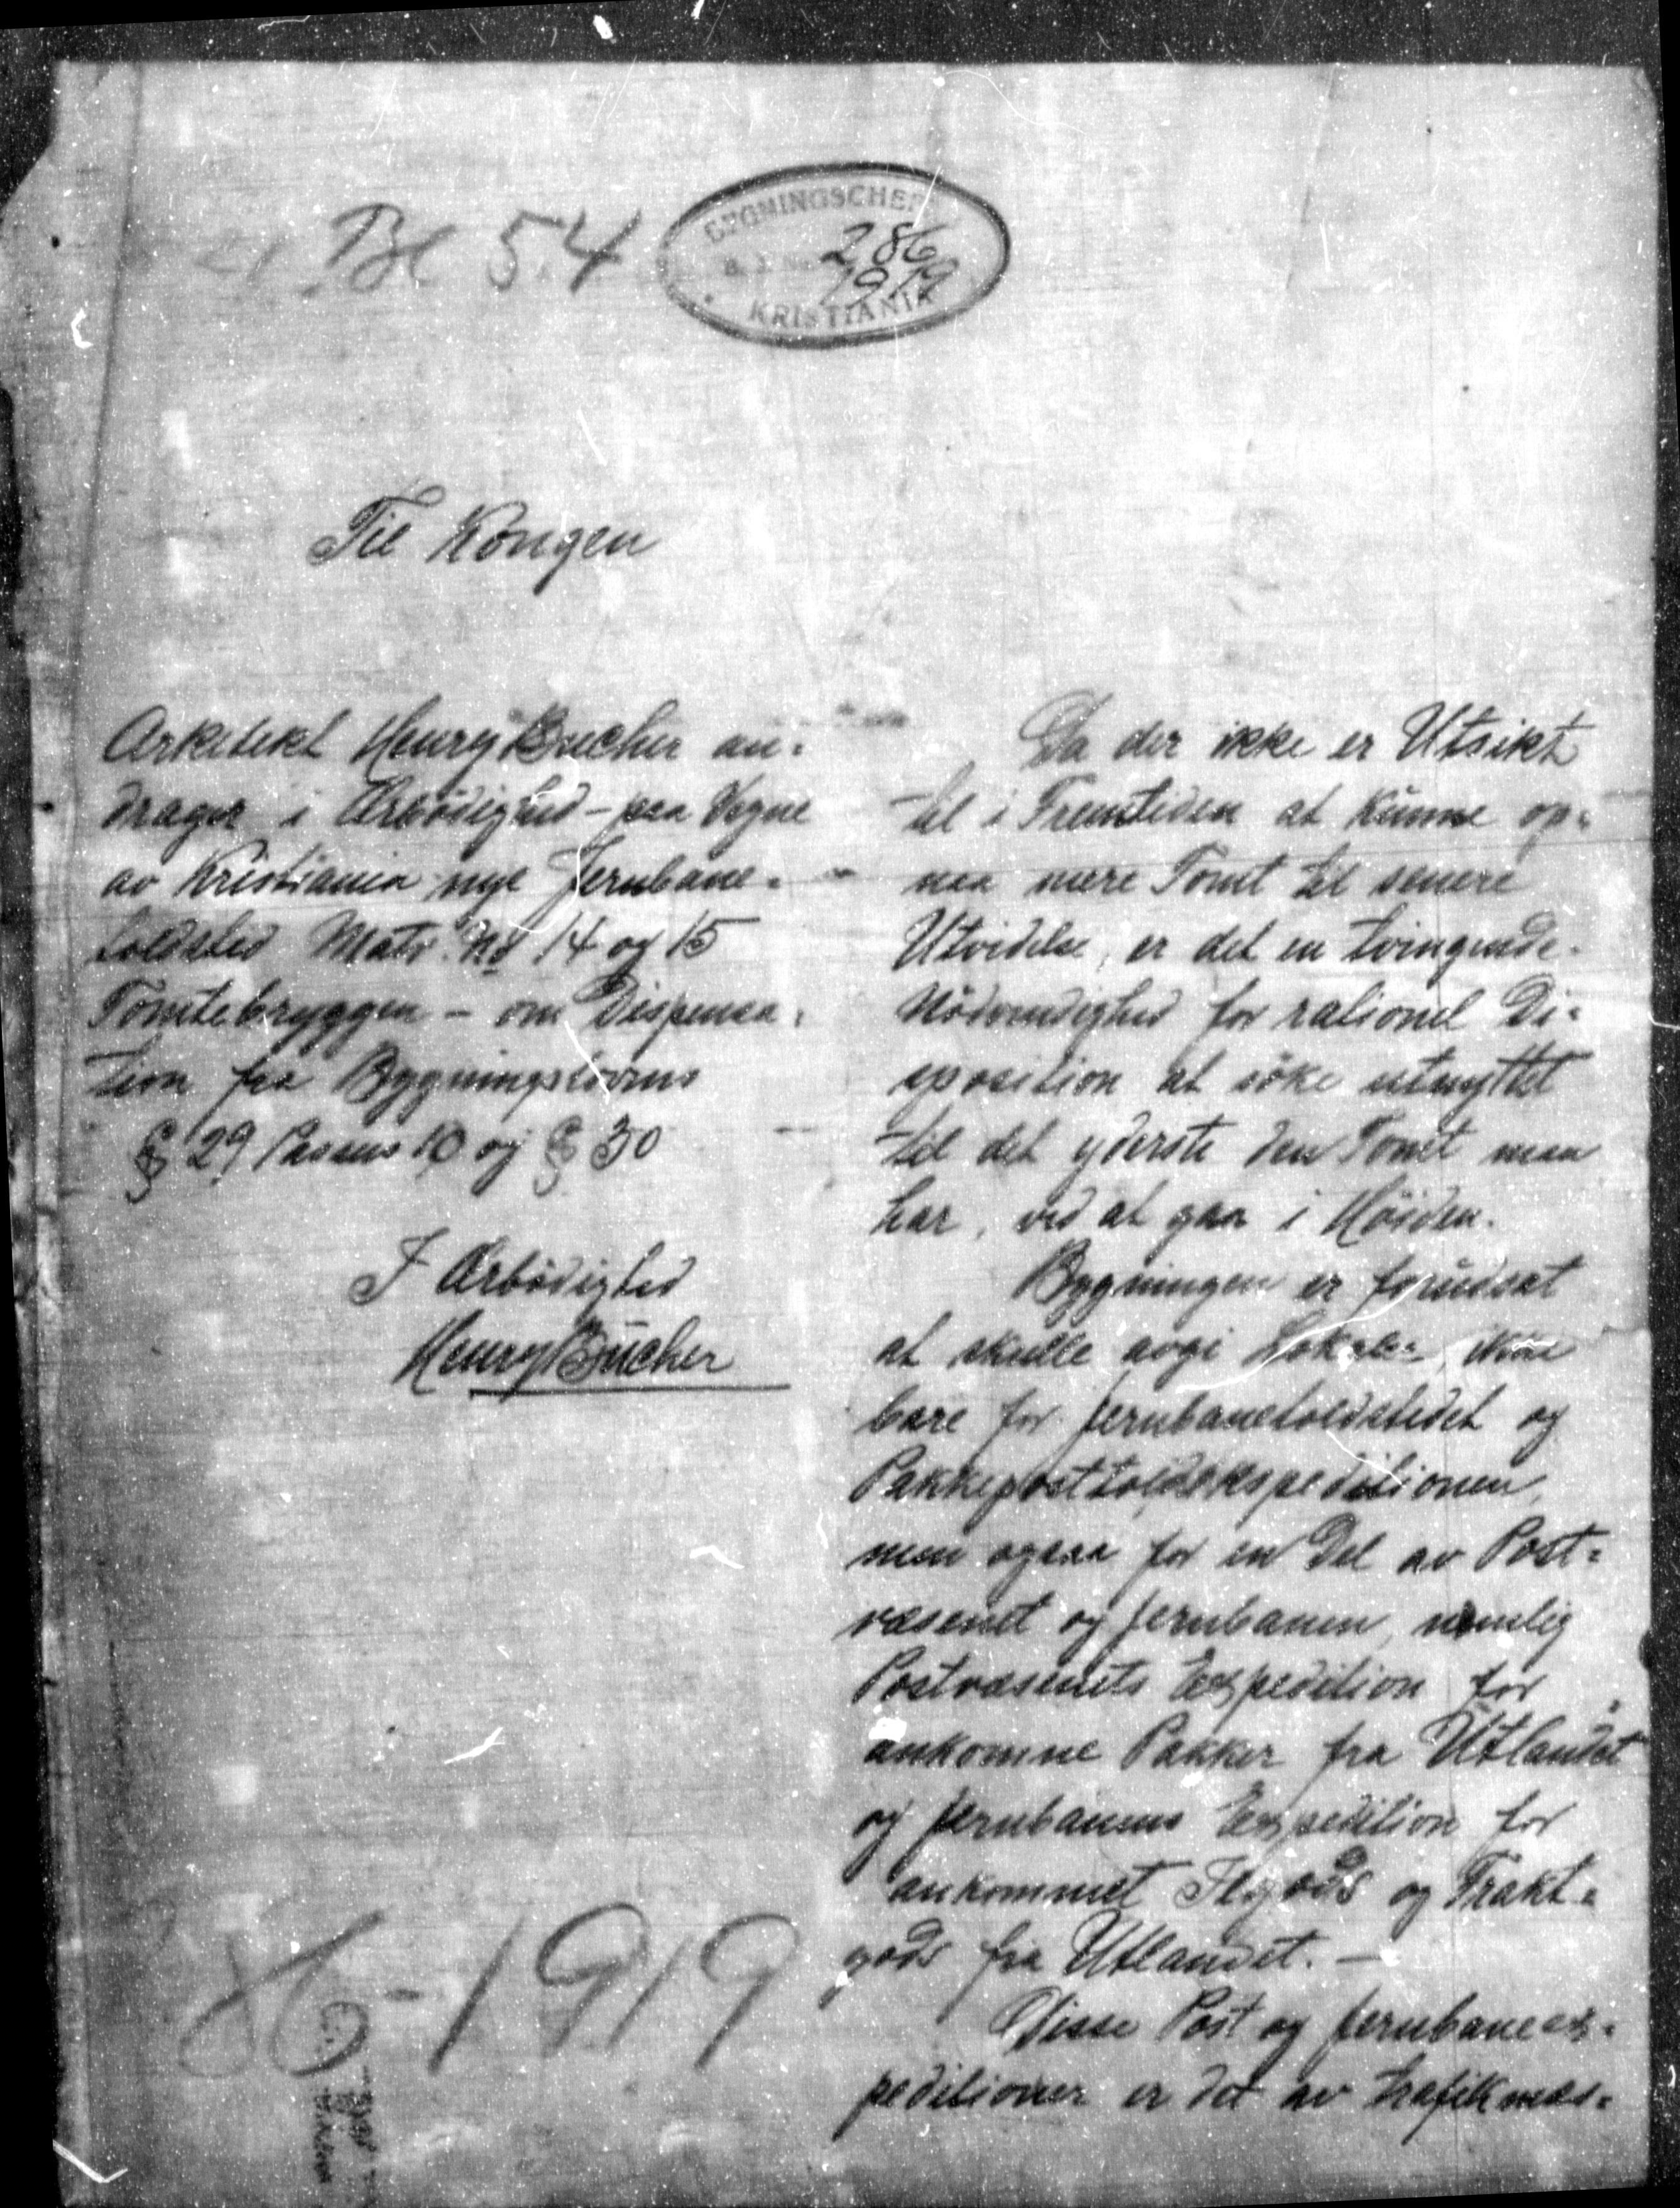 Bl 54
BYGNINGSCHEF
286
1919
KRISTIANIA
Til Kongen
Arkitekt Henry Bucher an-
drager i Ærbødighed - paa Vegne
av Kristiania nye Jernbane-
toldsted Matr. No 14 og 15
Tomtebryggen - om Dispensa-
tion fra Bygningslovens
§ 29 Passus 10 og § 30
I Ærbødighed
Henry Bucher
Da der ikke er Utsikt
til i Fremtiden at kunne op-
naa mere Tomt til senere
Utvidelse, er det en tvingende
Nødvendighed for rationel Di-
sposition at söke utnyttet
til det yderste den Tomt man
har, ved at gaa i Höiden.
Bygningen er forudsat
at skulle avgi Lokaler, ikke
bare for Jernbanetoldstedet og
Pakkeposttoldekspeditionen,
men ogsaa for en Del av Post-
væsenet og Jernbanen, nemlig
Postvæsenets Expedition for
ankomne Pakker fra Utlandet
og Jernbanens Expedition for
ankommet Ilgods og Frakt-
gods fra Utlandet. -
Disse Post og Jernbaneex-
peditioner er det av trafikmæs-
86-1919